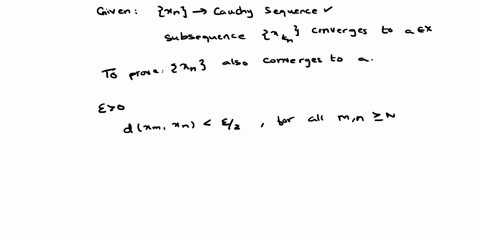 Given: {xn} → Cauchy Sequence ✓
subsequence {x_{k_n}} converges to a ∈ X
To prove: {xn} also converges to a.
ε>0
d(xm, xn) < ε/2 , for all m,n ≥ N